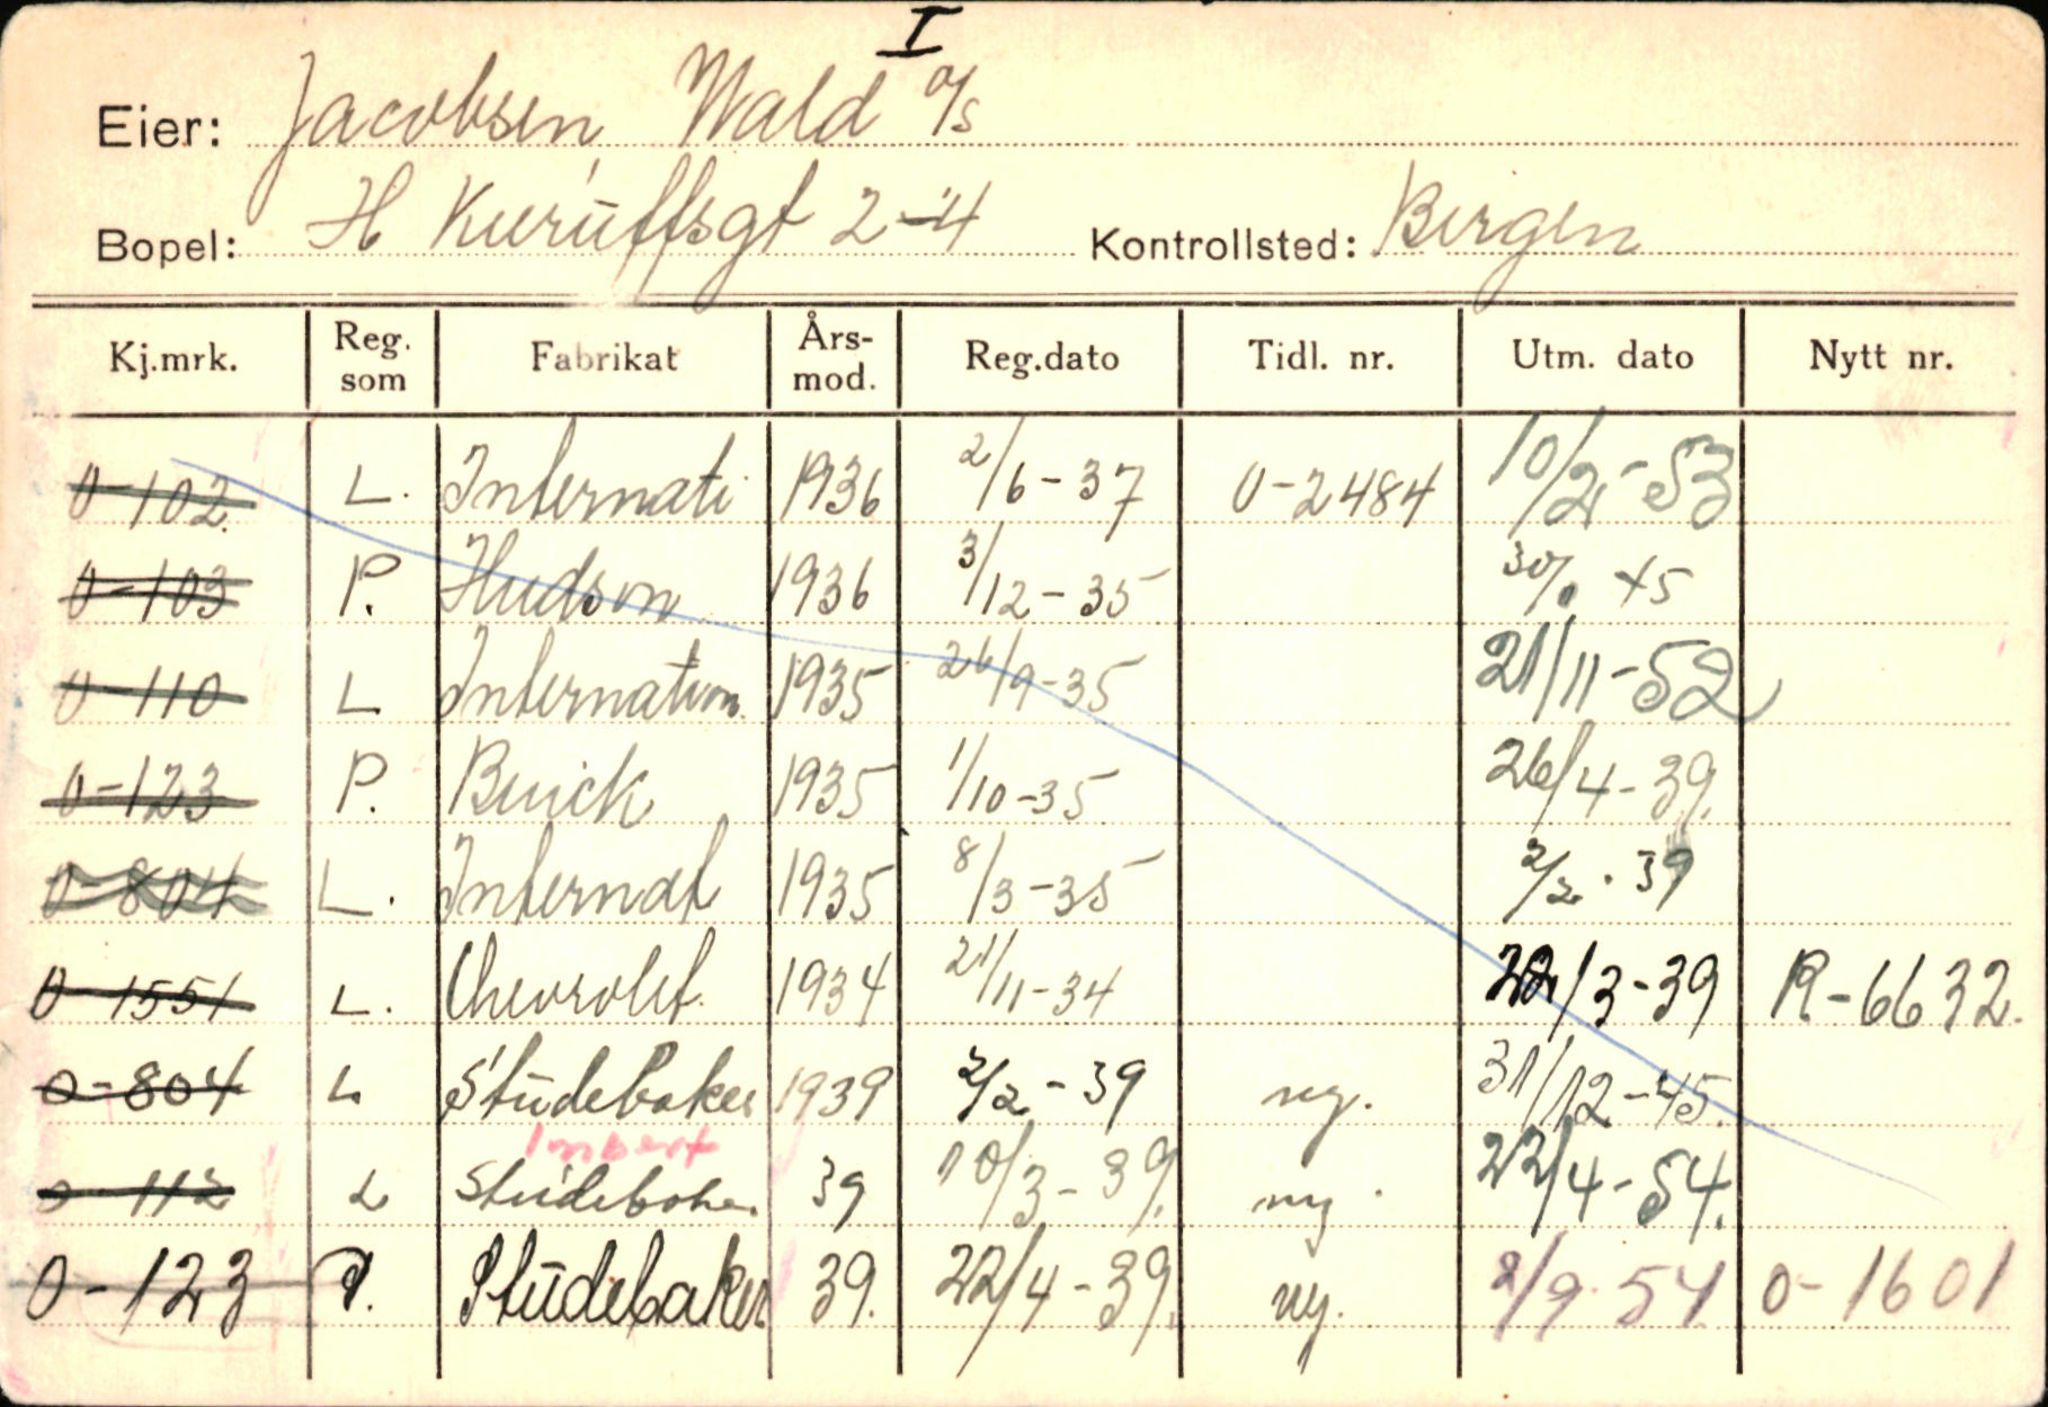 I
Eier: Jacobsen Wald a/s
Bopel: H Kuruffsgt 2-4 Kontrollsted: Bergen
Kj.mrk. Reg. som Fabrikat Års-mod. Reg.dato Tidl. nr. Utm. dato Nytt nr.
O-102 L. Internati 1936 2/6-37 O-2484 10/2-53
O-103 P. Hudson 1936 3/12-35 45
O-110 L Internation 1935 26/9-35 21/11-52
O-123 P. Buick 1935 1/10-35 26/4-39.
O-804 L. Internat 1935 8/3-35 2/2-39
O-1551 L. Chevrolet 1934 21/11-34 22/3-39 R-6632.
O-804 L Studebaker 1939 2/2-39 ny. 31/12-45.
Imbert
O-112 L Studebaker 39 10/3-39. ny 22/4-54.
O-123 P. Studebaker 39. 22/4-39. ny. 2/9 54 O-1601